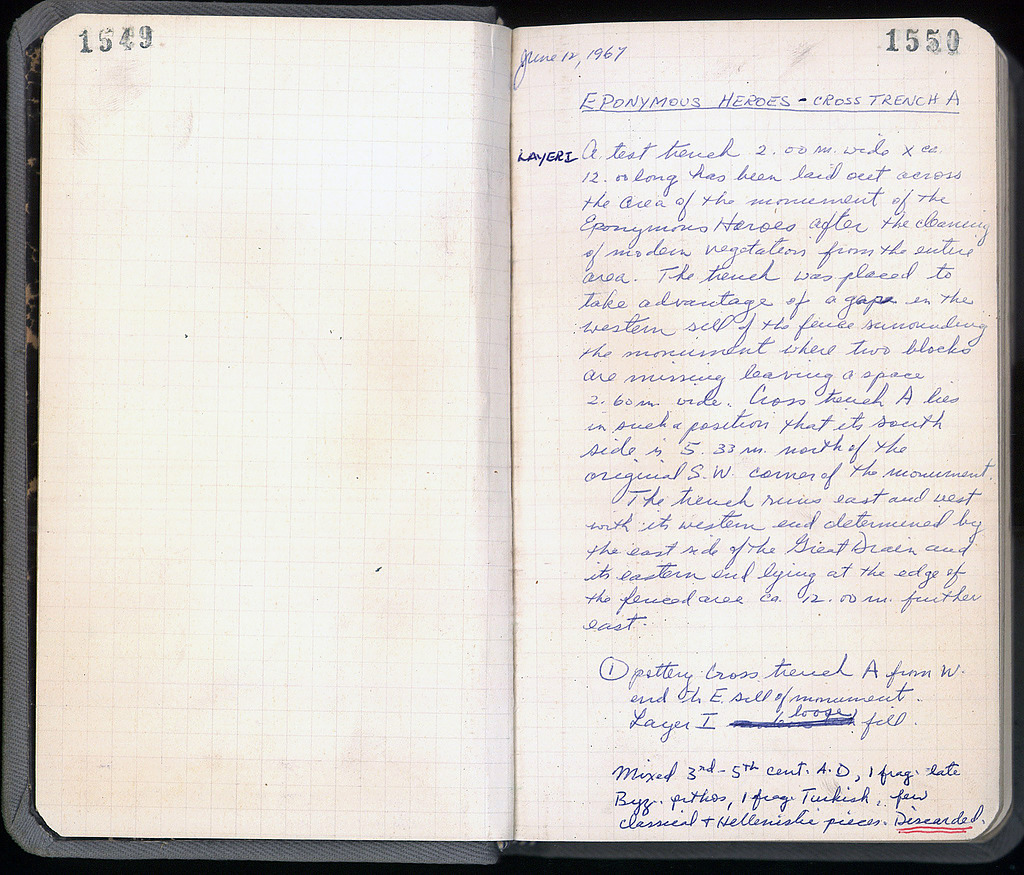 1549
1550
June 12, 1967
EPONYMOUS HEROES - CROSS TRENCH A
LAYER I
A test trench 2.00 m. wide x ca.
12.00 long has been laid out across
the area of the monument of the
Eponymous Heroes after the cleaning
of modern vegetation from the entire
area. The trench was placed to
take advantage of a gap in the
western sill of the fence surrounding
the monument where two blocks
are missing leaving a space
2.60 m. wide. Cross trench A lies
in such a position that its south
side is 5.33 m. north of the
original S.W. corner of the monument.
The trench runs east and west
with its western end determined by
the east side of the Great Drain and
its eastern end lying at the edge of
the fenced area ca. 12.00 m. further
east.
① pottery Cross trench A from W.
end to E. sill of monument.
Layer I loose fill.
Mixed 3rd - 5th cent. A.D, 1 frag. late
Byz. , 1 frag. Turkish, few
classical + Hellenistic pieces. Discarded.